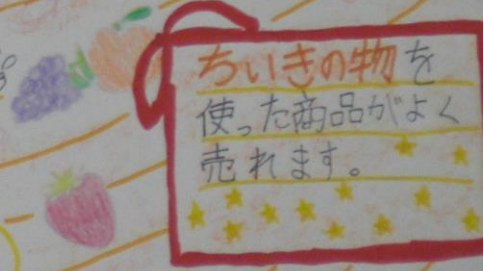 ちいきの物を
使った商品がよく
売れます。